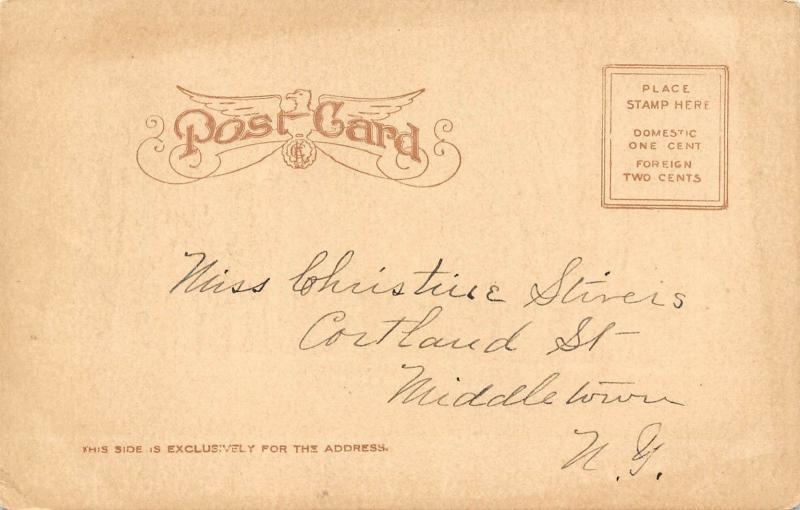 Post-Card
PLACE
STAMP HERE
DOMESTIC
ONE CENT
FOREIGN
TWO CENTS
Miss Christine Stivers
Cortland St
Middletown
N.Y.
THIS SIDE IS EXCLUSIVELY FOR THE ADDRESS.